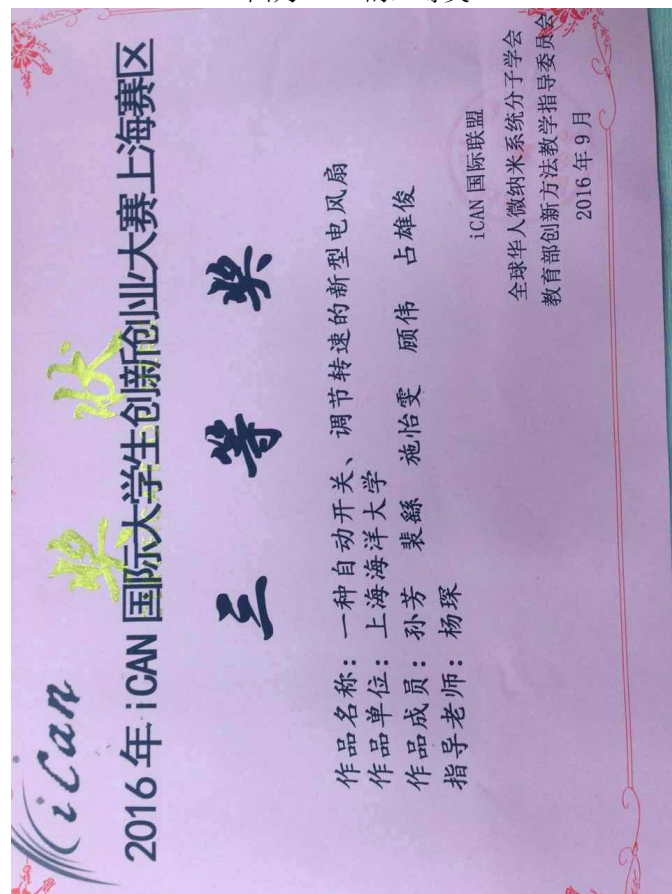 iCan
奖状
2016年iCAN国际大学生创新创业大赛上海赛区
三等奖
作品名称：一种自动开关、调节转速的新型电风扇
作品单位：上海海洋大学
作品成员：孙芳 裴繇 施怡雯 顾伟 占雄俊
指导老师：杨琛
iCAN国际联盟
全球华人微纳米系统分子学会
教育部创新方法教学指导委员会
2016年9月